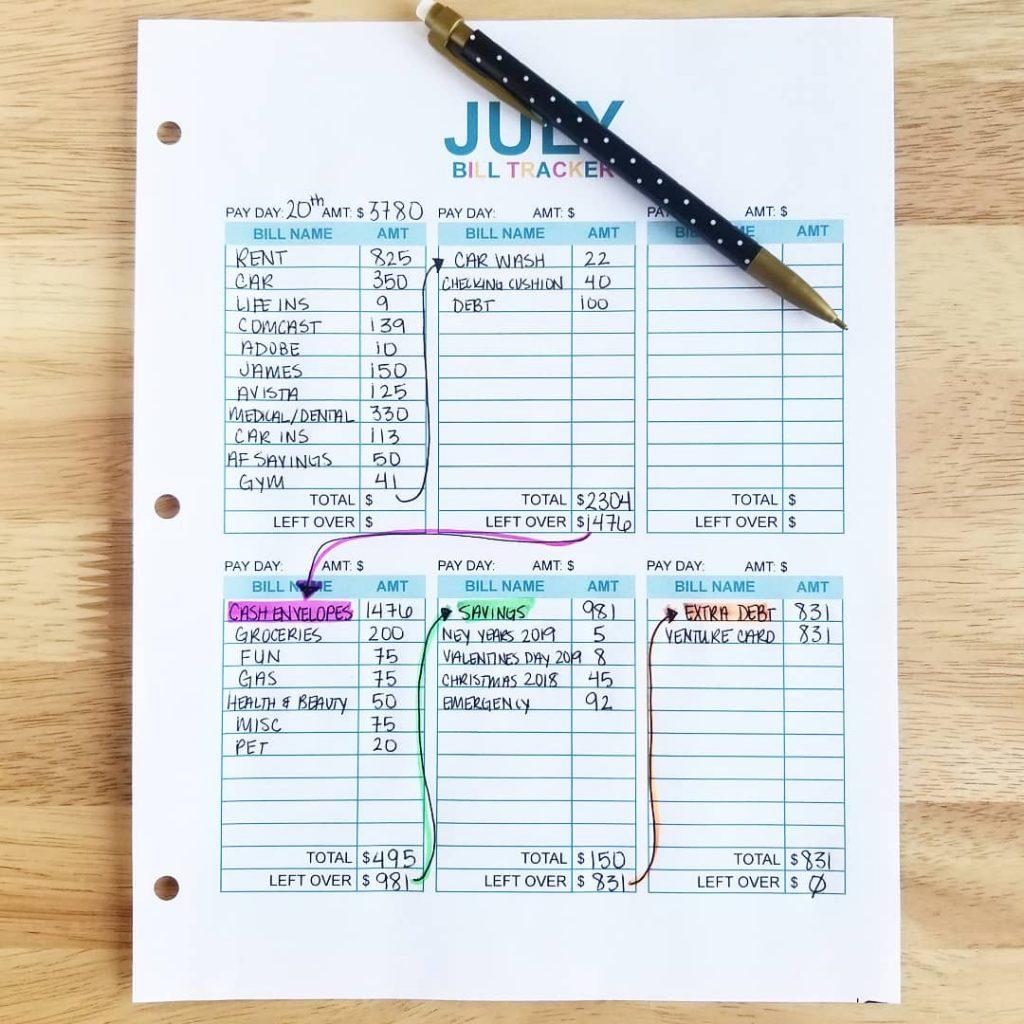 JULY
BILL TRACKER
PAY DAY: 20th AMT: $ 3780
BILL NAME AMT
RENT 825
CAR 350
LIFE INS 9
COMCAST 139
ADOBE 10
JAMES 150
AVISTA 125
MEDICAL/DENTAL 330
CAR INS 113
AF SAVINGS 50
GYM 41
TOTAL $
LEFT OVER $
PAY DAY: AMT: $
BILL NAME AMT
CAR WASH 22
CHECKING CUSHION 40
DEBT 100
TOTAL $2304
LEFT OVER $1476
AMT: $
AMT
TOTAL $
LEFT OVER $
PAY DAY: AMT: $
BILL NAME AMT
CASH ENVELOPES 1476
GROCERIES 200
FUN 75
GAS 75
HEALTH & BEAUTY 50
MISC 75
PET 20
TOTAL $495
LEFT OVER $ 981
PAY DAY: AMT: $
BILL NAME AMT
SAVINGS 981
NEY YEARS 2019 5
VALENTINES DAY 2019 8
CHRISTMAS 2018 45
EMERGENCY 92
TOTAL $150
LEFT OVER $ 831
PAY DAY: AMT: $
BILL NAME AMT
EXTRA DEBT 831
VENTURE CARD 831
TOTAL $831
LEFT OVER $ 0